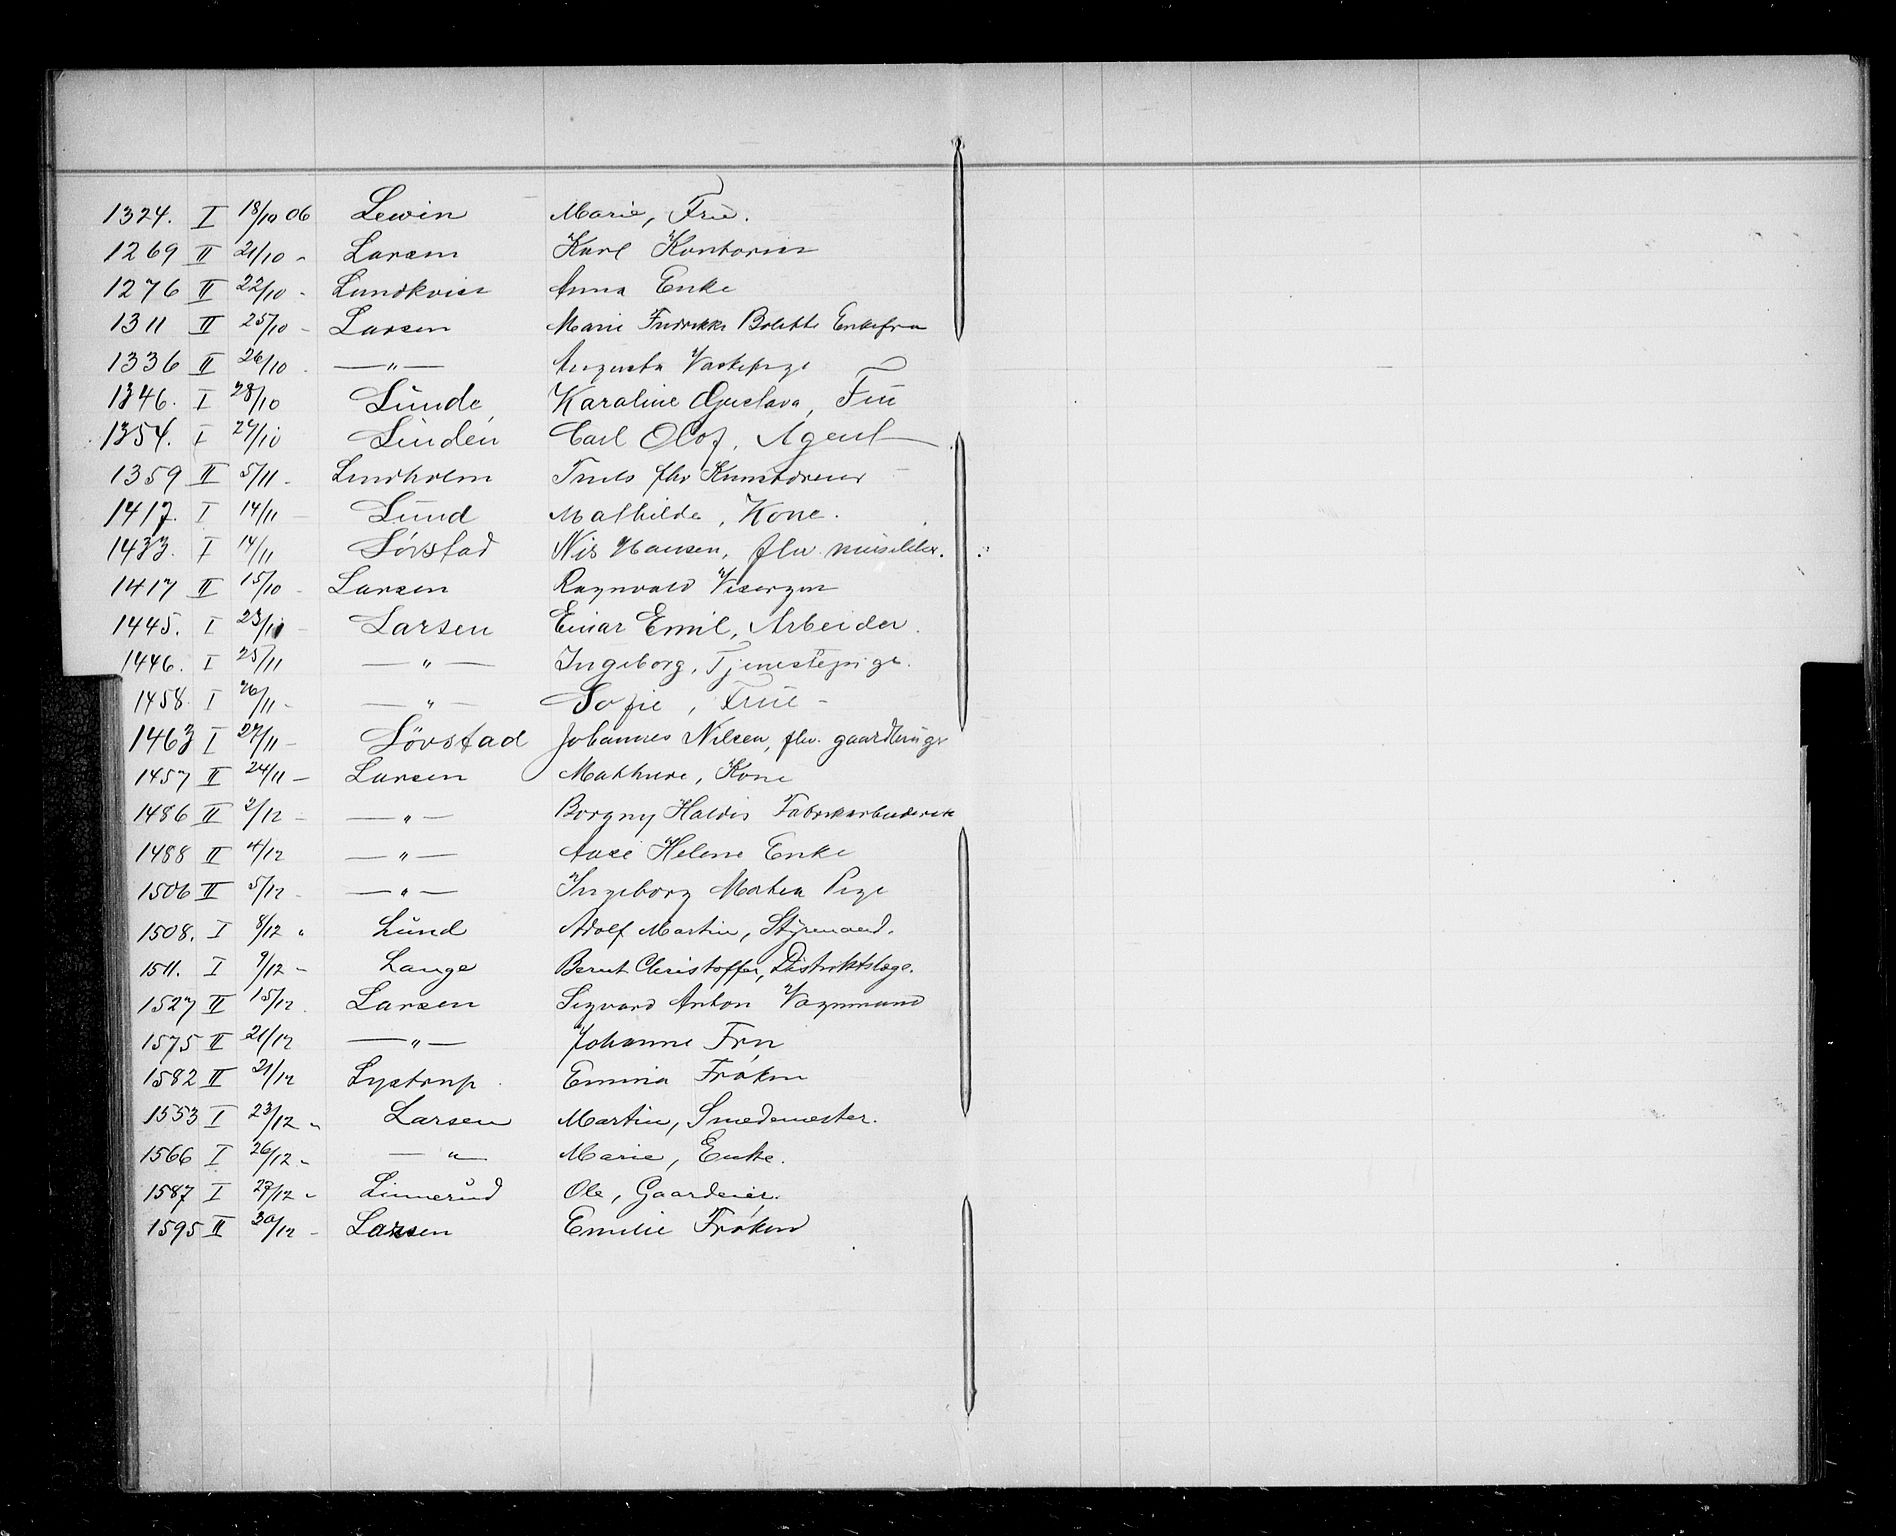 1324. I 18/10 06 Lewin Marie, Frü.
1269 II 21/10 - Larsen Karl Kontorist
1276 II 22/10 - Lundkvist Anna Enke
1311 II 25/10 - Larsen Marie Fredrikke Bolette Enkefru
1336 II 26/10 . —"— Augusta Vaskepige
1346. I 28/10 Lünde, Karoline Gustava, Frü
1354. I 29/10 Lindén Carl Olof, Agent
1359 II 5/11 - Lindholm Truls fhv
1417. I 14/11 - Lünd Mathilde, Kone.
1433. I 14/11 Lövstad Nils Hansen, fhv.
1417 II 15/10 - Larsen Ragnvald Visergut
1445. I 23/11 - Larsen Einar Emil, Arbeider.
1446. I 25/11 —"— Ingeborg, Tjenestepige.
1458. I 26/11 - —"— Sofie, Früe -
1463 I 27/11 - Lövstad Johannes Nilsen, fhv. gaardbrüger
1457 II 24/11 - Larsen Mathine, Kone
1486 II 2/12 - —"— Borgny Haldis Fabrikarbeiderske
1488 II 4/12 —"— Aase Helene Enke
1506 II 5/12 - —"— Ingeborg Marten Pige
1508. I 8/12 " Lünd Adolf Martin, Styrmand.
1511. I 9/12 - Lange Bernt Christoffer, Distriktslæge.
1527 II 15/12 . Larsen Sigvard Anton Vognmand
1575 II 21/12 —"— Johanne Fru
1582 II 21/12 Lystrup. Emma Frøken
1553 I 23/12 " Larsen Martin, Smedemester.
1566 I 26/12 " —"— Marie, Enke.
1587 I 27/12 " Linnerüd Ole, Gaardeier.
1595 II 30/12 - Larsen Emilie Frøken